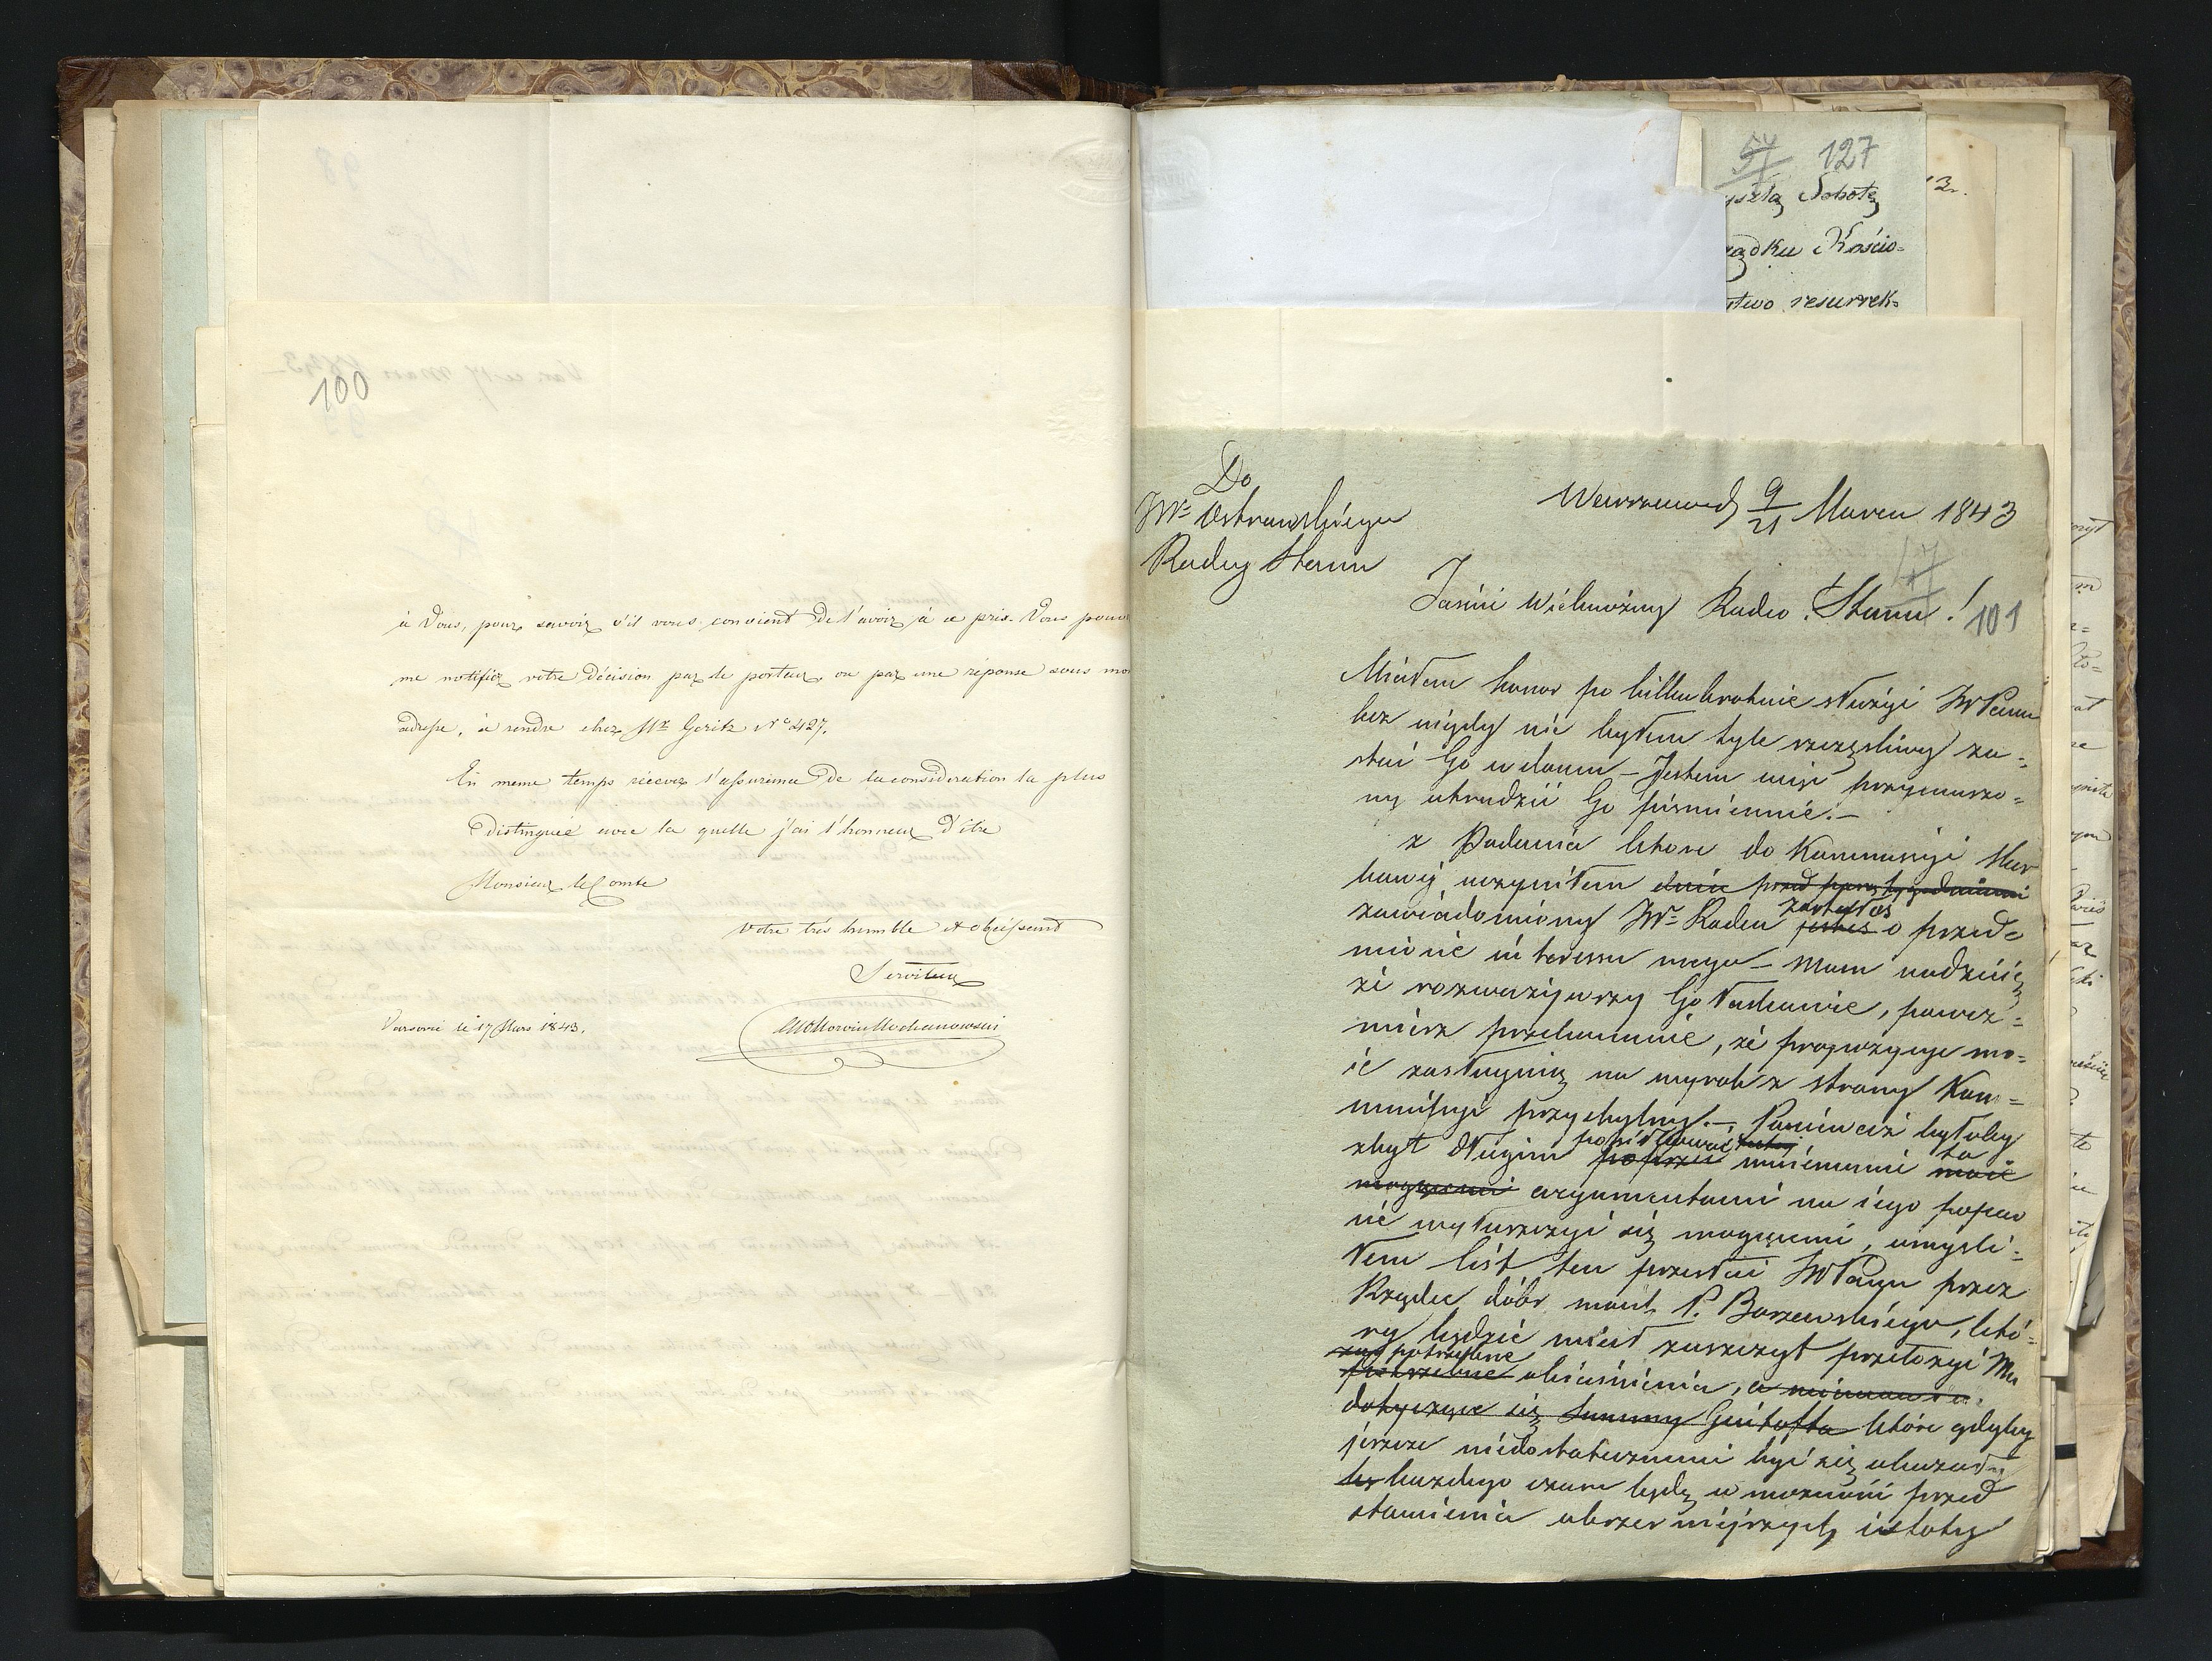 100
à Vous, pour savoir s'il vous convient de l'avoir à ce prix. Vous pouv
me notifier votre décision par le porteur ou par une réponse sous mo
adresse, à rendre chez Mr Geritz No 427.
En meme temps recevez l'assurence de la consideration la plus
distinguée avec la quelle j'ai l'honneur d'être
Monsieur le Comte
Votre très humble et obeissand
Serviteur
Varsovie le 17 Mars 1843.
54 127
yszłą Sobotę
ządku Kościo=
stwo resurrek=
Do
JW= Ostrowskiego
Radcy Stanu
Warszawa d 9/21 Marca 1843
Jaśnie Wielmożny Radco Stanu!
101
Miałem honor po kilkakrotnie służyć JWPanu
lecz nigdy nie byłem tyle szczęśliwy za=
stać Go w domu – Jestem więc przymuszo=
ny utrudzić Go piśmiennie. –
z Podania które do Kommissyi Skar
bowéj uczyniłem dnia przed parą tygodniami
zawiadomiony JW= Radca zostałeś jesteś o przed
miocie interessu mego – Mam nadzieję
że rozważywszy Go łaskawie, powez=
miesz przekonanie, że propozycye mo=
ie zasługują na wyrok z strony Kom=
missyi przychylny. – Ponieważ byłoby
zbyt długim popierać mniemanie to moie
mogącemi argumentami na iego popar
cie wytuszczyć się mogącemi, umyśli=
łem list ten przesłać JWPanu przez
Rządcę dóbr moich P. Borzewskiego, któ=
ry będzie miał zaszczyt przełożyć Mu
potrzebne
potrzebne obiaśnienia, a mianowicie
dotyczące się Summy które gdyby
jeszcze niedostatecznemi być się okazały
każdego czasu będę w możności przed
stawienia obszerniéjszych istoty